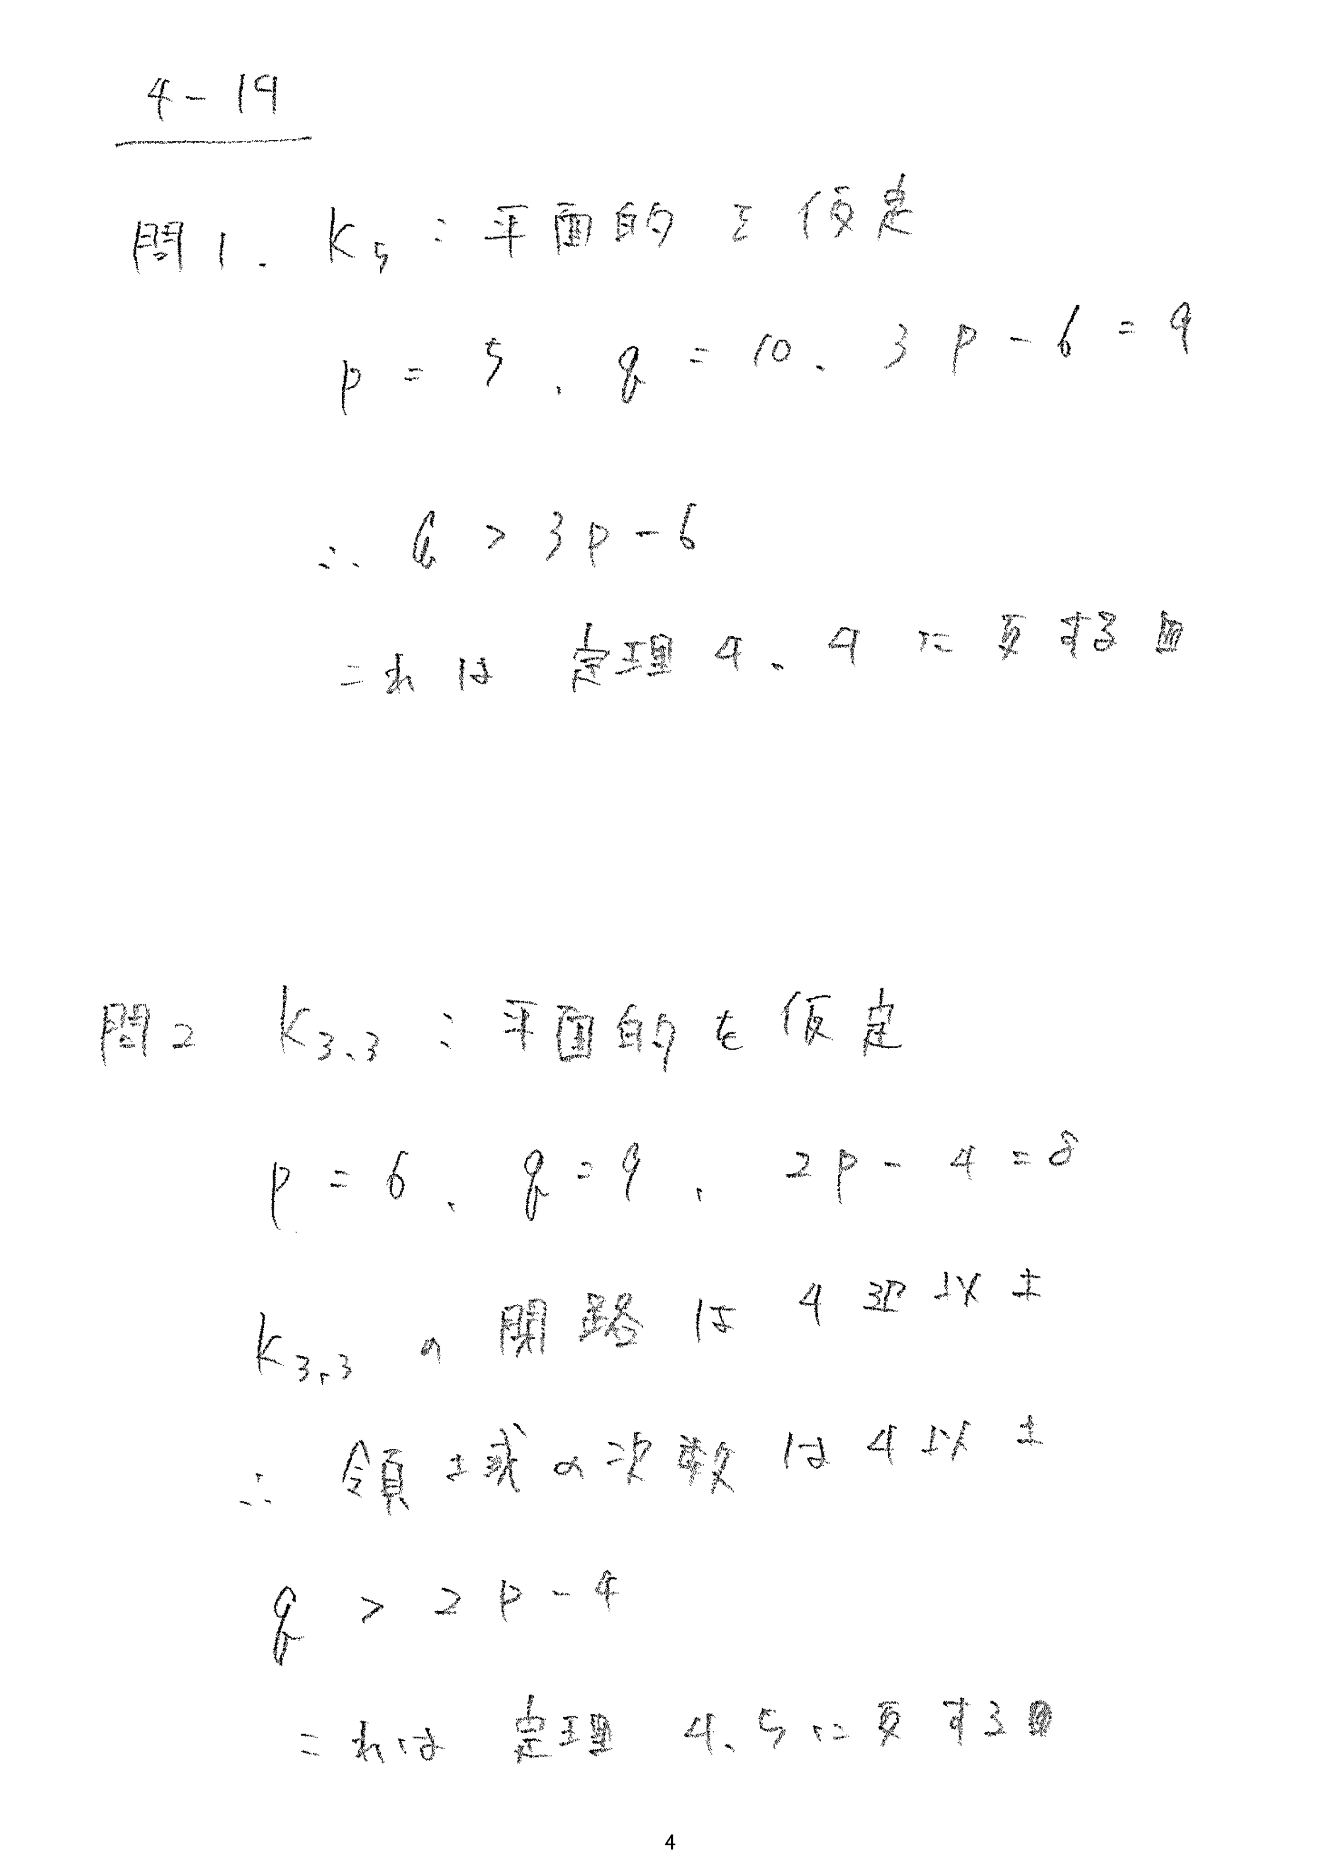 4-19
問1. K5:平面的を仮定
p = 5、q = 10、3p-6 = 9
∴ q > 3p-6
これは 定理 4.4 に反する■
問2 K3,3:平面的を仮定
p = 6、q = 9、2p - 4 = 8
K3,3 の閉路は 4辺以上
∴ 領域の次数は4以上
q > 2p-4
これは 定理 4.5に反する■
4